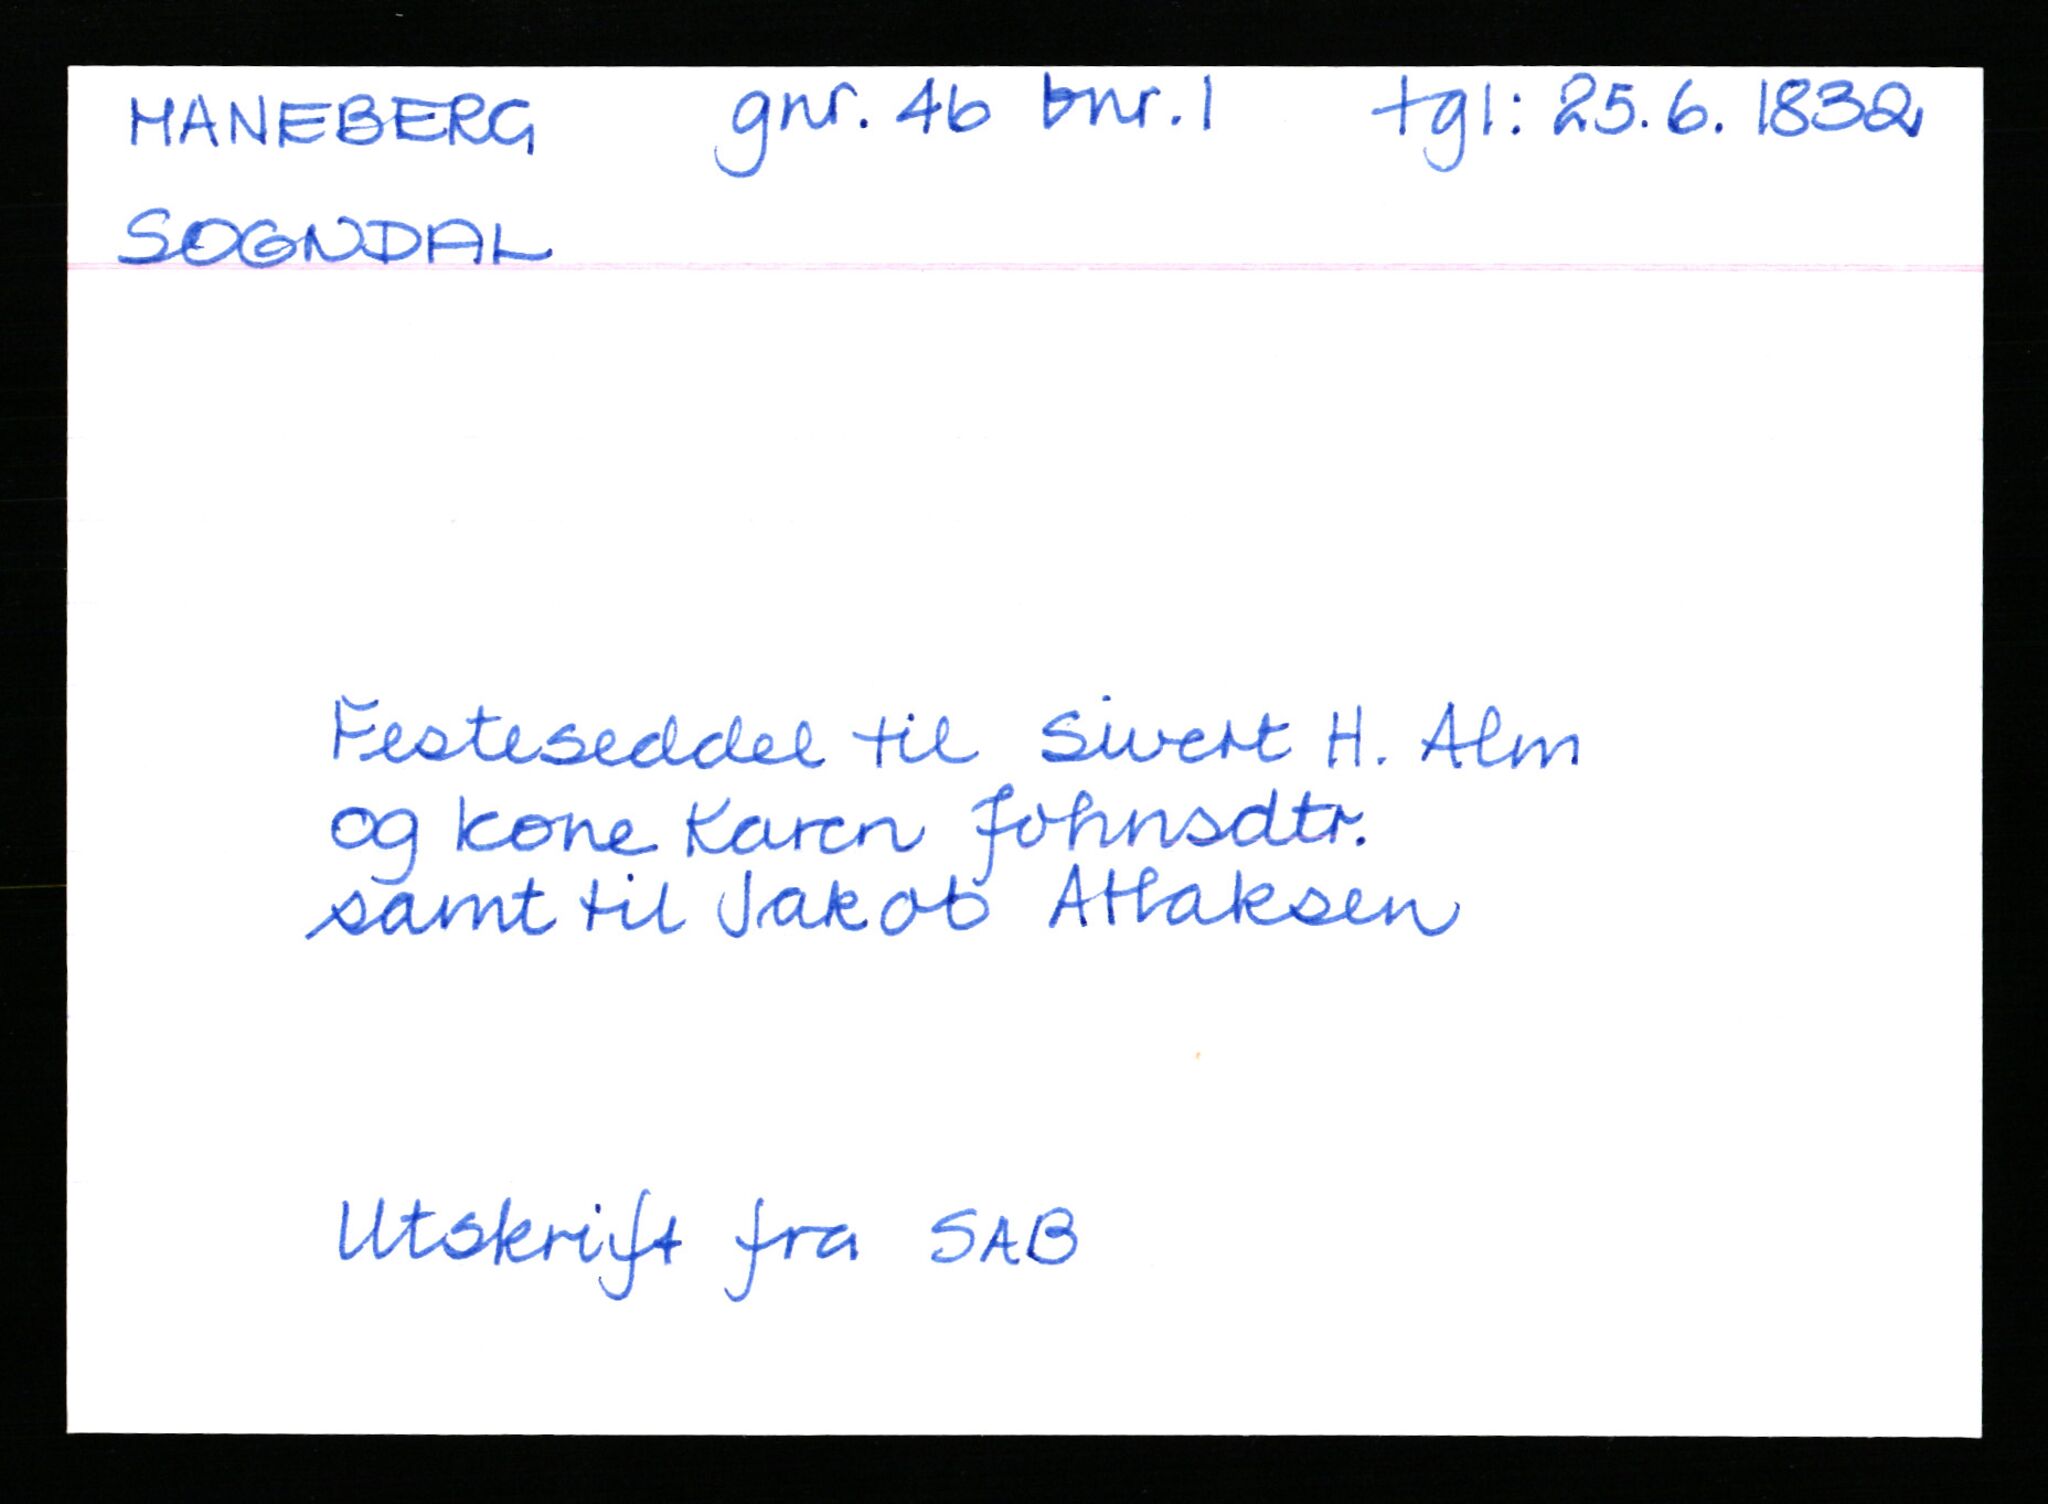 HANEBERG gnr. 46 bnr. 1 tgl: 25.6. 1832
SOGNDAL
Festeseddel til Sivert H. Alm
og kone Karen Johnsdtr.
samt til Jakob Atlaksen
Utskrift fra SAB